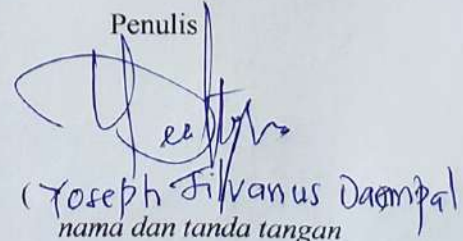 Penulis
(Yoseph Silvanus Daempal
nama dan tanda tangan